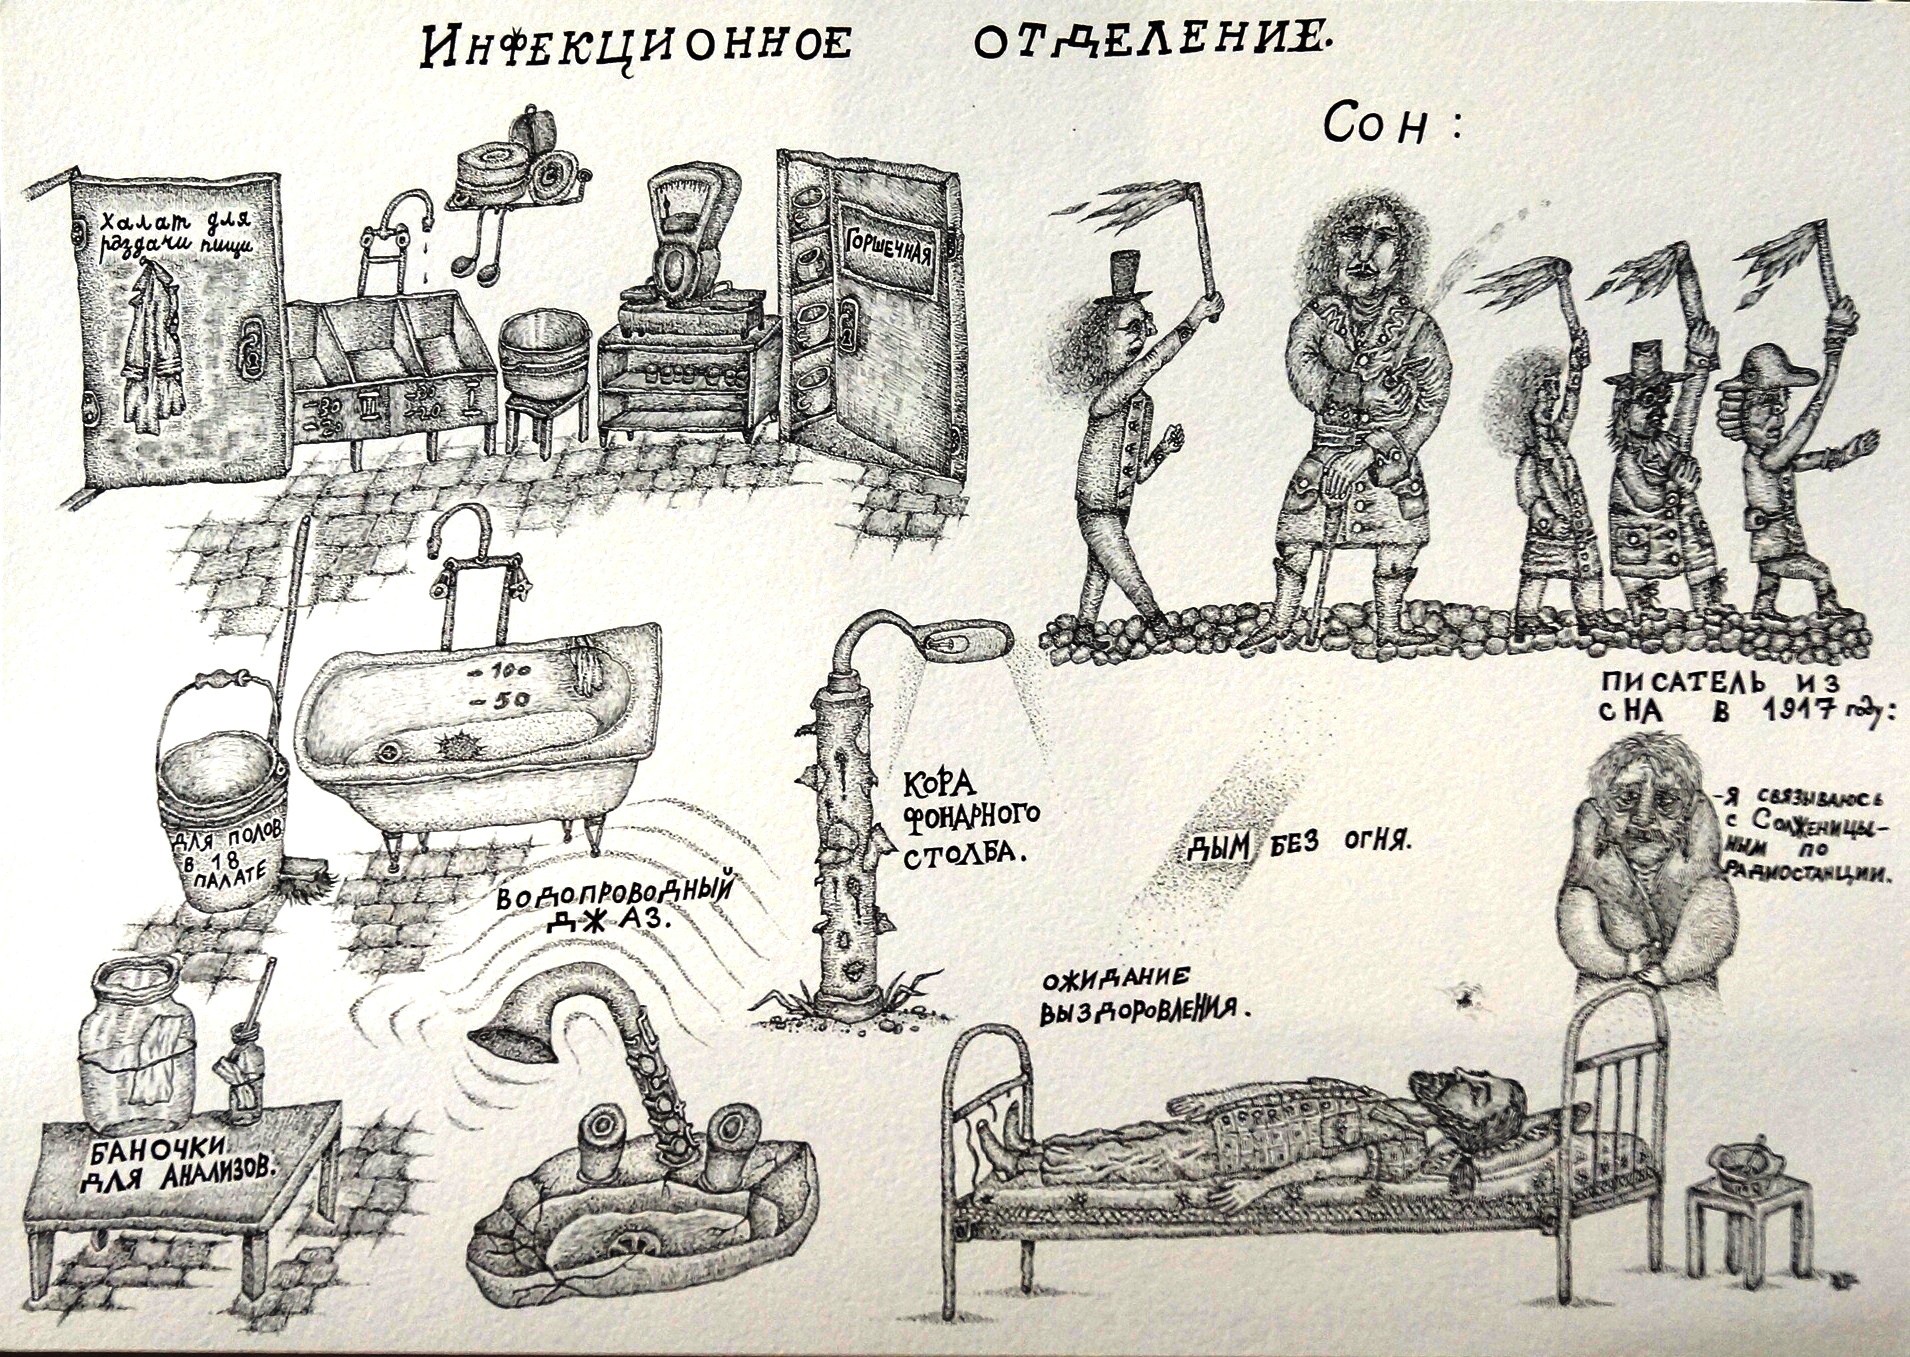 Инфекционное отделение.
Сон:
Халат для
раздачи пищи
Горшечная
-30
-20
III
-30
-20
I
писатель из
сна в 1917 году:
-100
-50
Кора
фонарного
столба.
дым без огня.
-Я связываюсь
с Солженицы-
ным по
радиостанции.
для полов
в 18
палате
Водопроводный
джаз.
ожидание
выздоровления.
Баночки
для анализов.